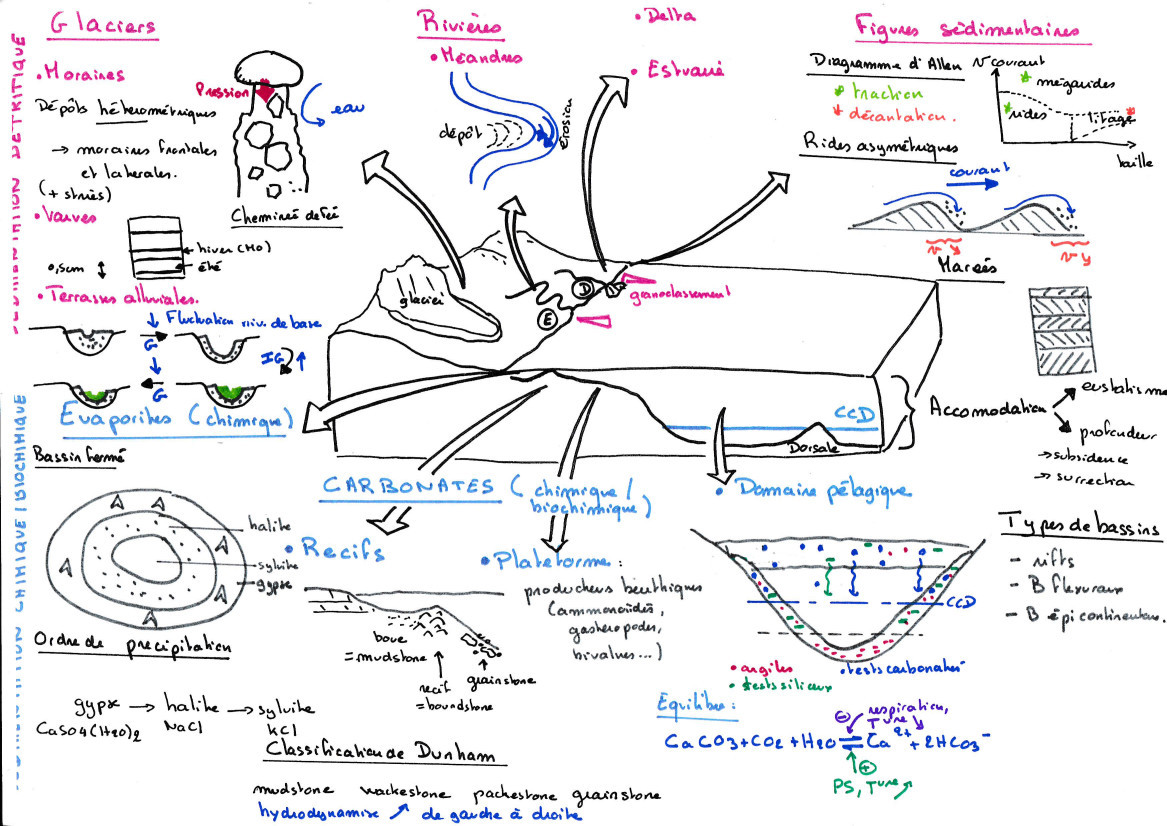 SEDIMENTATION DETRITIQUE
Glaciers
• Moraines
Dépôts hétérométriques
→ moraines frontales
et latérales.
(+ striés)
Pression
eau
Cheminée de fée
• Varves
hiver (MO)
été
0,5cm
• Terrasses alluviales.
Fluctuation niv. de base
G
IG
G
Rivières
• Méandres
dépôt
érosion
• Delta
• Estuaire
Figures sédimentaires
Diagramme d'Allen
* traction
* décantation.
V courant
* mégarides
* rides
litage
taille
Rides asymétriques
courant
v ↘
v ↘
Marées
glacier
D
E
granoclassement
CCD
Dorsale
Accomodation
eustatisme
profondeur
→ subsidence
→ surrection
CHIMIQUE / BIOCHIMIQUE
Evaporites (chimique)
Bassin fermé
halite
sylvite
gypse
Ordre de précipitation
gypse → halite → sylvite
CaSO4(H2O)2
NaCl
KCl
CARBONATES (chimique /
biochimique)
• Recifs
boue
= mudstone
recif
= boundstone
grainstone
• Plateforme :
producteurs benthiques
(ammonoïdés,
gasteropodes,
bivalves...)
• Domaine pélagique
CCD
• argiles
• tests carbonatés
• tests siliceux
Types de bassins
- rifts
- B flexuraux
- B épicontinentaux.
Equilibre :
⊖ respiration,
Ture ↘
CaCO3 + CO2 + H2O ⇌ Ca2+ + 2HCO3-
⊕
PS, Ture ↗
Classification de Dunham
mudstone wackestone packestone grainstone
hydrodynamisme ↗ de gauche à droite